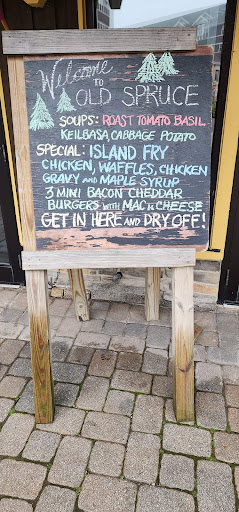 Welcome to
OLD SPRUCE
SOUPS: ROAST TOMATO BASIL
KEILBASA, CABBAGE POTATO
SPECIAL: ISLAND FRY
CHICKEN, WAFFLES, CHICKEN
GRAVY AND MAPLE SYRUP
3 MINI BACON CHEDDAR
BURGERS WITH MAC N CHEESE
GET IN HERE AND DRY OFF!